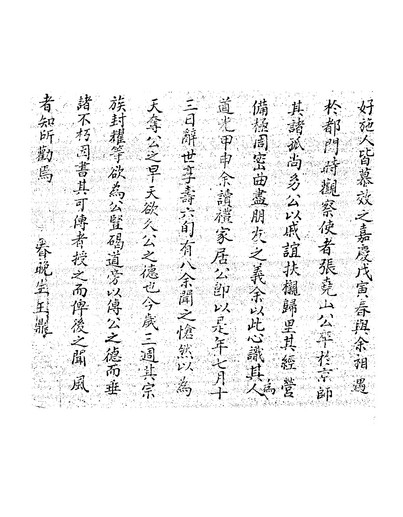 好施人皆慕效之嘉慶戊寅春與余相遇
於都門時觀察使者張堯山公卒於京師
其諸孤尚多公以戚誼扶櫬歸里其經營
備極周密曲盡朋友之義余以此心識其人焉
道光甲申余讀禮家居公卽以是年七月十
三日辭世享壽六旬有八余聞之愴然以為
天奪公之早天欲久公之德也今歲三週其宗
族封耀等欲為公豎碣道旁以傳公之德而垂
諸不朽因書其可傳者授之而俾後之聞風
者知所勸焉 眷晚生王鼎